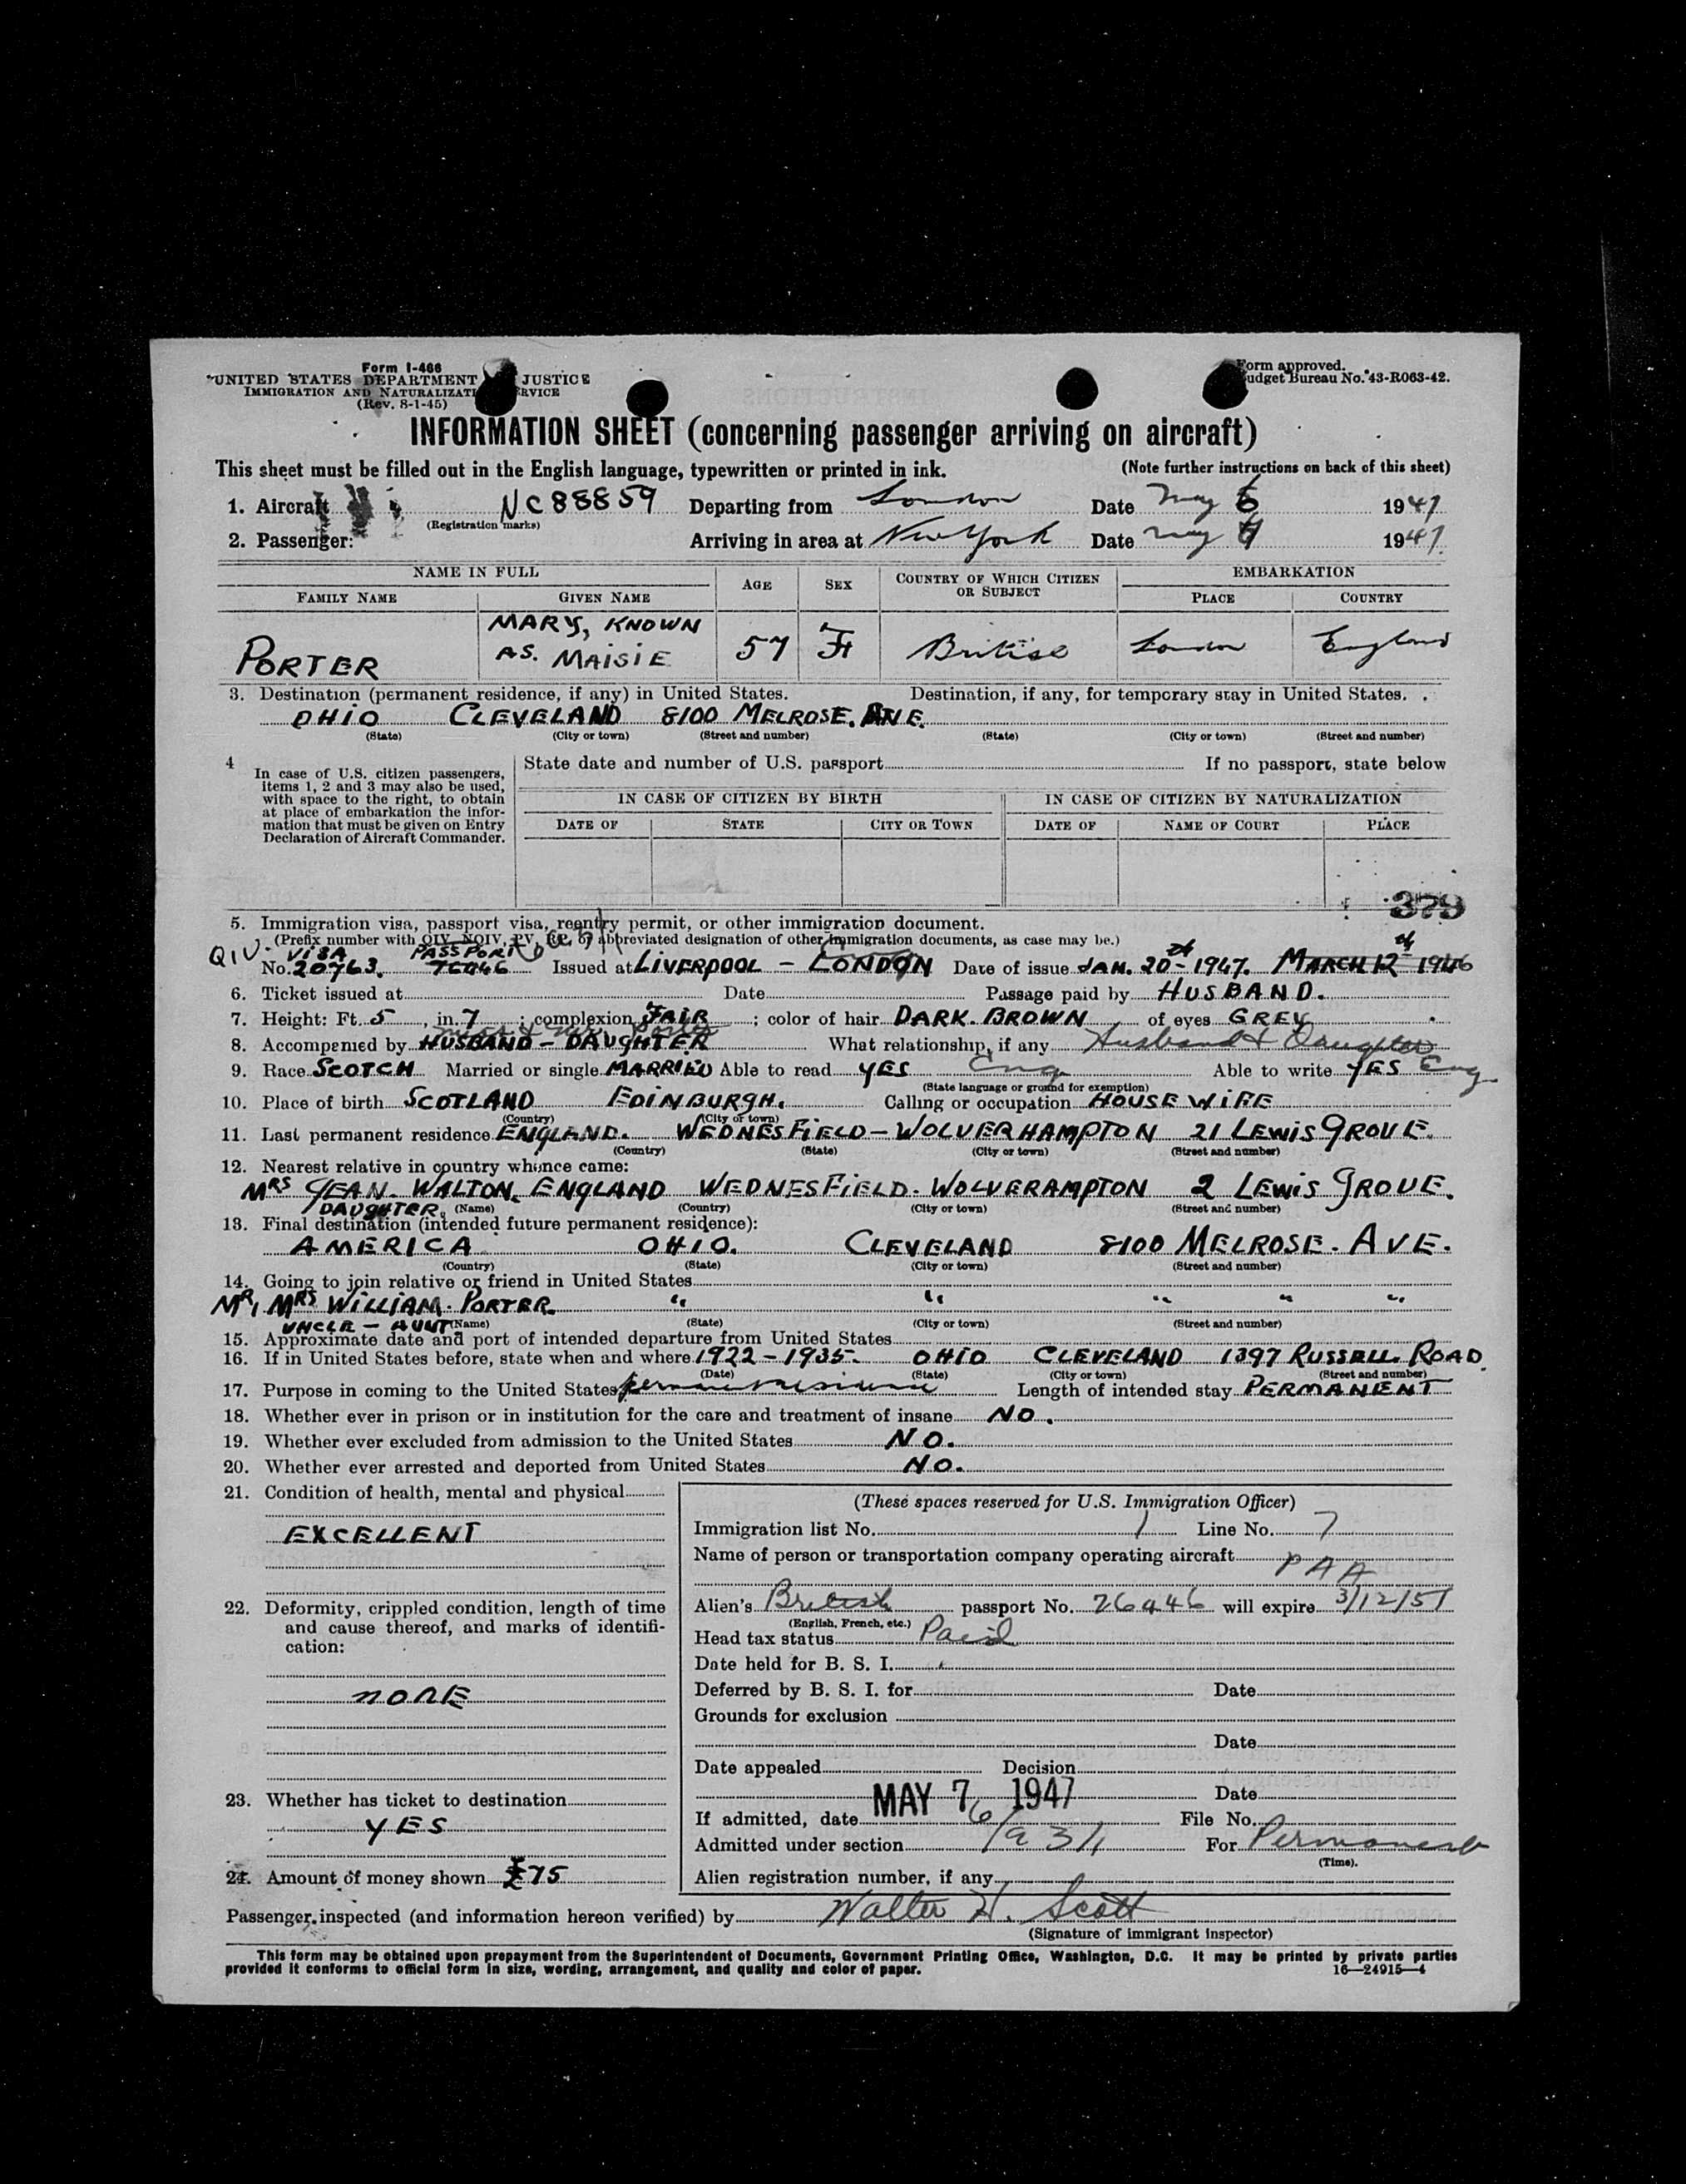 Form I-466
UNITED STATES DEPARTMENT JUSTICE
IMMIGRATION AND NATURALIZATI RVICE
(Rev. 8-1-45)
Form approved.
udget Bureau No. 43-R063-42.
INFORMATION SHEET (concerning passenger arriving on aircraft)
This sheet must be filled out in the English language, typewritten or printed in ink. (Note further instructions on back of this sheet)
1. Aircraft NC88859 Departing from London Date May 6 1947
(Registration marks)
2. Passenger: Arriving in area at New York Date May 1947
NAME IN FULL AGE SEX COUNTRY OF WHICH CITIZEN OR SUBJECT EMBARKATION
FAMILY NAME GIVEN NAME PLACE COUNTRY
PORTER MARY, KNOWN AS. MAISIE 57 F British London England
3. Destination (permanent residence, if any) in United States. Destination, if any, for temporary stay in United States.
OHIO CLEVELAND 8100 MELROSE. AVE.
(State) (City or town) (Street and number) (State) (City or town) (Street and number)
4 In case of U.S. citizen passengers,
items 1, 2 and 3 may also be used,
with space to the right, to obtain
at place of embarkation the infor-
mation that must be given on Entry
Declaration of Aircraft Commander.
State date and number of U.S. passport If no passport, state below
IN CASE OF CITIZEN BY BIRTH IN CASE OF CITIZEN BY NATURALIZATION
DATE OF STATE CITY OR TOWN DATE OF NAME OF COURT PLACE
379
5. Immigration visa, passport visa, reentry permit, or other immigration document.
(Prefix number with QIV, NQIV, PV, RP, or abbreviated designation of other immigration documents, as case may be.)
QIV. VISA PASSPORT
No. 20763. 76446 Issued at LIVERPOOL - LONDON Date of issue JAN. 20th 1947. MARCH 12th 1946
6. Ticket issued at Date Passage paid by HUSBAND.
7. Height: Ft. 5, in. 7; complexion FAIR; color of hair DARK. BROWN of eyes GREY
8. Accompenied by HUSBAND - DAUGHTER What relationship, if any Husband & Daughter
9. Race SCOTCH Married or single MARRIED Able to read YES Eng Able to write YES Eng
(State language or ground for exemption)
10. Place of birth SCOTLAND EDINBURGH. Calling or occupation HOUSEWIFE
(Country) (City or town)
11. Last permanent residence ENGLAND. WEDNESFIELD - WOLVERHAMPTON 21 LEWIS GROVE.
(Country) (State) (City or town) (Street and number)
12. Nearest relative in country whence came:
MRS JEAN. WALTON. ENGLAND WEDNESFIELD. WOLVERAMPTON 2 LEWIS GROVE.
DAUGHTER. (Name) (Country) (City or town) (Street and number)
13. Final destination (intended future permanent residence):
AMERICA OHIO. CLEVELAND 8100 MELROSE. AVE.
(Country) (State) (City or town) (Street and number)
14. Going to join relative or friend in United States
MR, MRS WILLIAM. PORTER. " " " " "
UNCLE - AUNT (Name) (State) (City or town) (Street and number)
15. Approximate date and port of intended departure from United States
16. If in United States before, state when and where 1922 - 1935. OHIO CLEVELAND 1397 RUSSELL. ROAD.
(Date) (State) (City or town) (Street and number)
17. Purpose in coming to the United States Length of intended stay PERMANENT
18. Whether ever in prison or in institution for the care and treatment of insane NO.
19. Whether ever excluded from admission to the United States NO.
20. Whether ever arrested and deported from United States NO.
21. Condition of health, mental and physical
EXCELLENT
22. Deformity, crippled condition, length of time
and cause thereof, and marks of identifi-
cation:
NONE
23. Whether has ticket to destination
YES
24. Amount of money shown £75
(These spaces reserved for U.S. Immigration Officer)
Immigration list No. 1 Line No. 7
Name of person or transportation company operating aircraft
PAA
Alien's British passport No. 76446 will expire 3/12/51
(English, French, etc.)
Head tax status Paid
Date held for B. S. I.
Deferred by B. S. I. for Date
Grounds for exclusion
Date
Date appealed Decision
MAY 7 1947 Date
If admitted, date File No.
Admitted under section For Permanent
(Time).
Alien registration number, if any
Passenger inspected (and information hereon verified) by Walter H. Scott
(Signature of immigrant inspector)
This form may be obtained upon prepayment from the Superintendent of Documents, Government Printing Office, Washington, D.C. It may be printed by private parties
provided it conforms to official form in size, wording, arrangement, and quality and color of paper. 16—24915-4